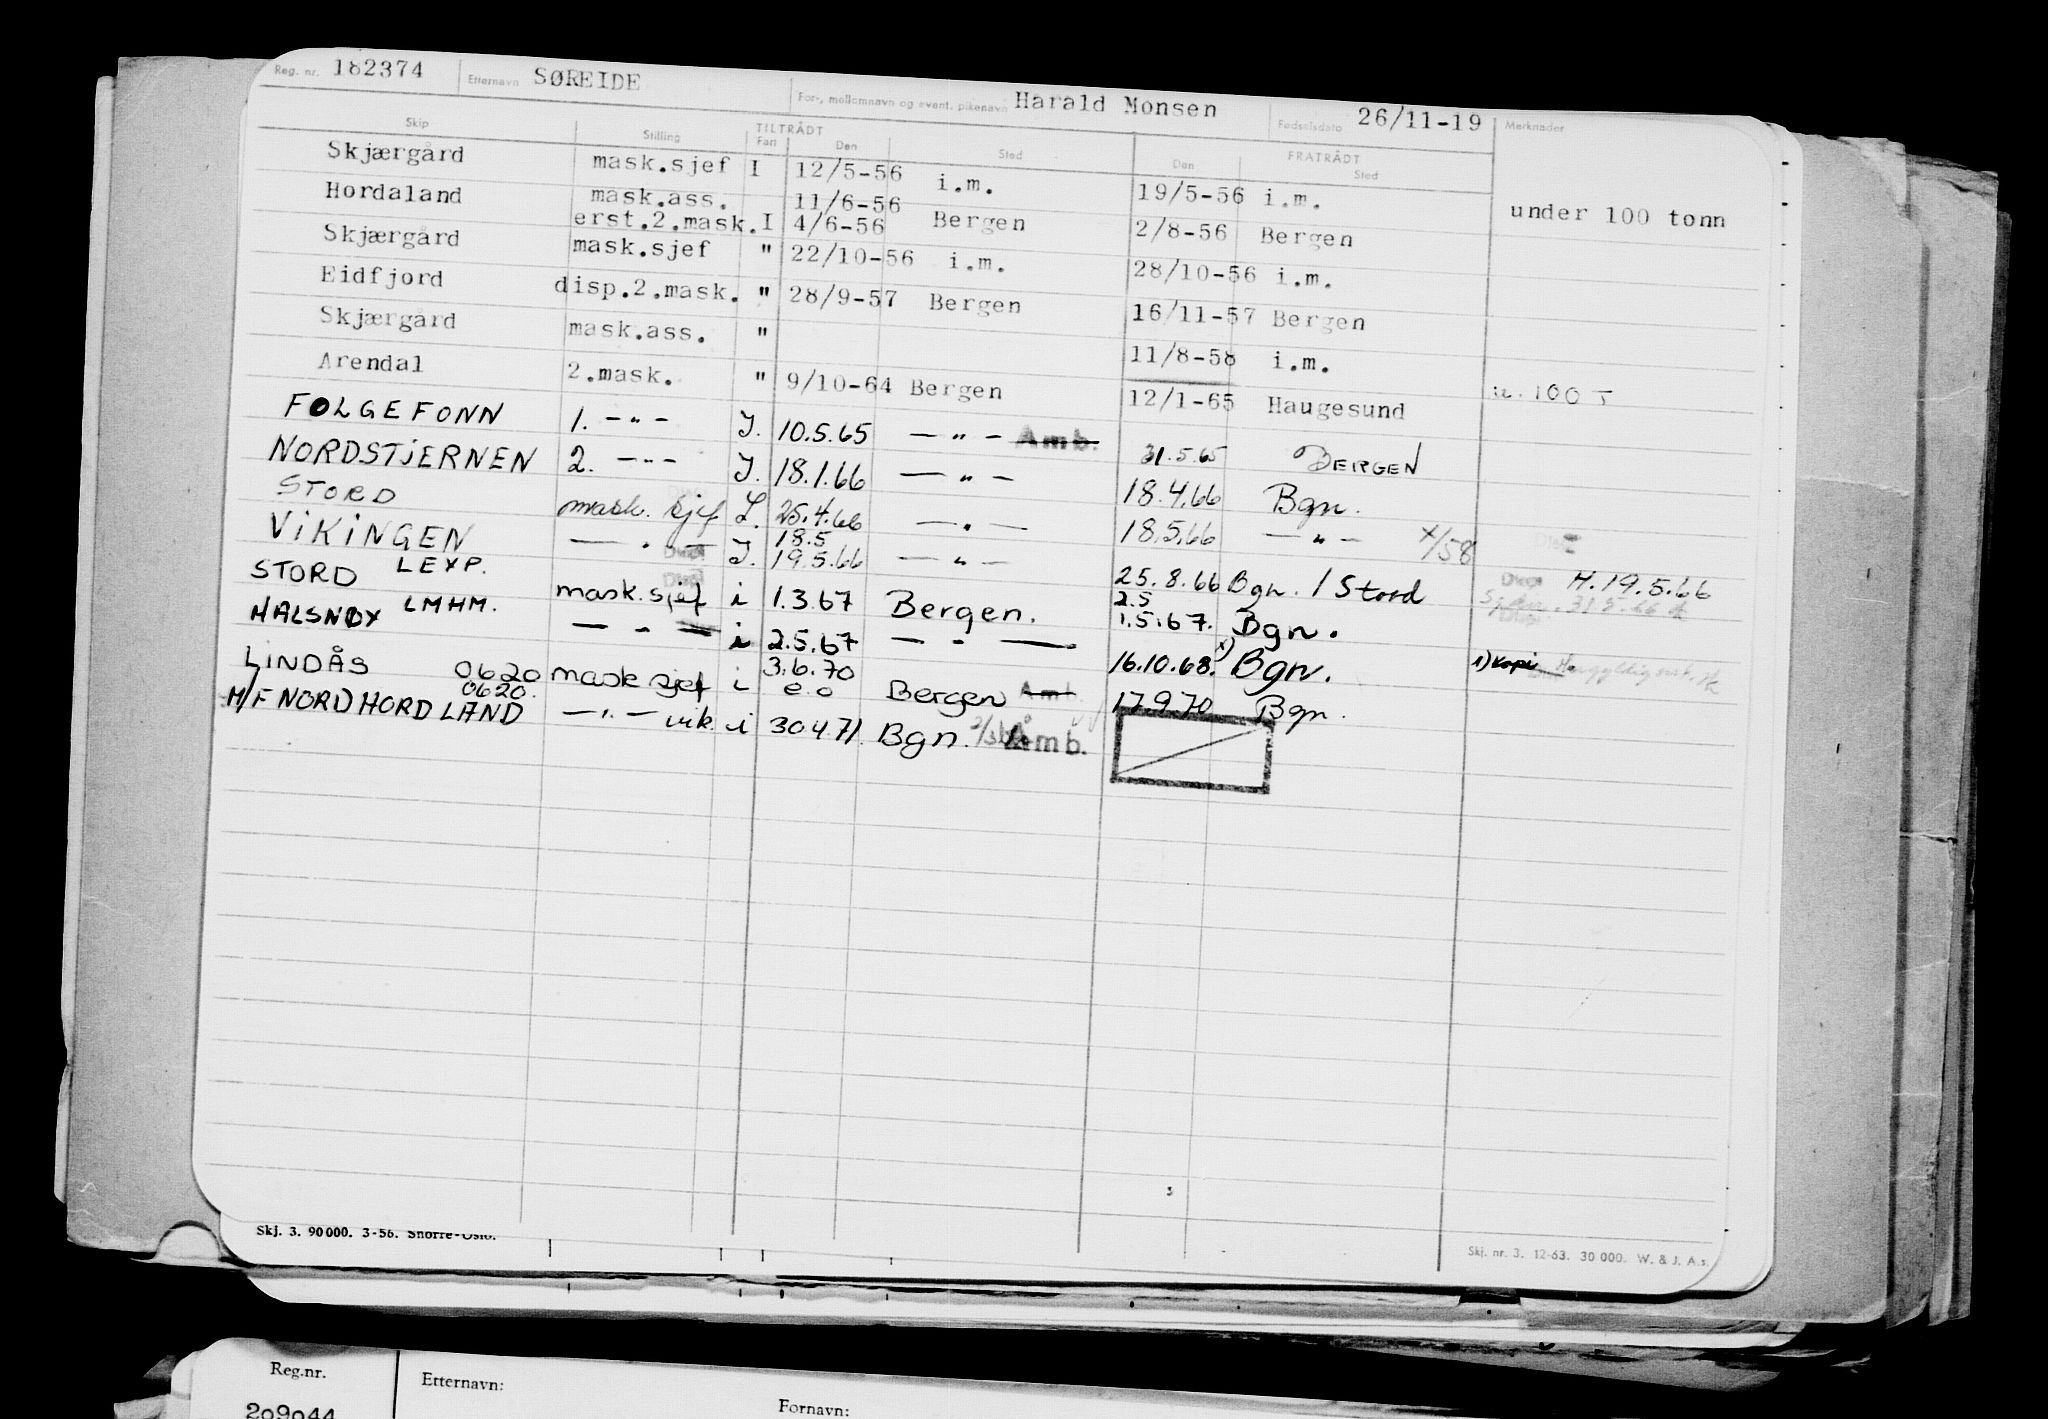 Reg. nr. 182374 Etternavn SØREIDE For-, mellomnavn og event. pikenavn Harald Monsen Fødselsdato 26/11-19 Merknader
Skip Stilling TILTRÅDT Fart Den Sted FRATRÅDT Den Sted
Skjærgård mask.sjef I 12/5-56 i.m. 19/5-56 i.m.
Hordaland mask.ass. 11/6-56
erst.2.mask. I 4/6-56 Bergen 2/8-56 Bergen under 100 tonn
Skjærgård mask.sjef " 22/10-56 i.m. 28/10-56 i.m.
Eidfjord disp.2.mask. " 28/9-57 Bergen 16/11-57 Bergen
Skjærgård mask.ass. " 11/8-58 i.m.
Arendal 2.mask. " 9/10-64 Bergen 12/1-65 Haugesund u. 100 T
FOLGEFONN 1. — " — I. 10.5.65 — " — Amb. 31.5.65 BERGEN
NORDSTJERNEN 2. — " — I. 18.1.66 — " — 18.4.66 Bgn.
STORD mask. sjef I. 25.4.66 — " — 18.5.66 — " — x/58
VIKINGEN — " — I. 18.5
19.5.66 — " — 25.8.66 Bgn. / Stord H. 19.5.66
STORD LEXP. mask. sjef i 1.3.67 Bergen. 2.5
1.5.67. Bgn.
HALSNØY LMHM. — " — i 2.5.67 — " — 16.10.68. x) Bgn. 1) Kopi
LINDÅS 0620 mask sjef i 3.6.70
e.o Bergen Amb. 17.9.70 Bgn.
M/F NORDHORDLAND 0620. — " — i 30.4.71. Bgn. Amb.
Skj. 3. 90 000. 3-56. Snorre-Oslo.
Skj. nr. 3. 12-63. 30 000. W. & J. A.s.
Reg.nr. Etternavn: Fornavn:
209044